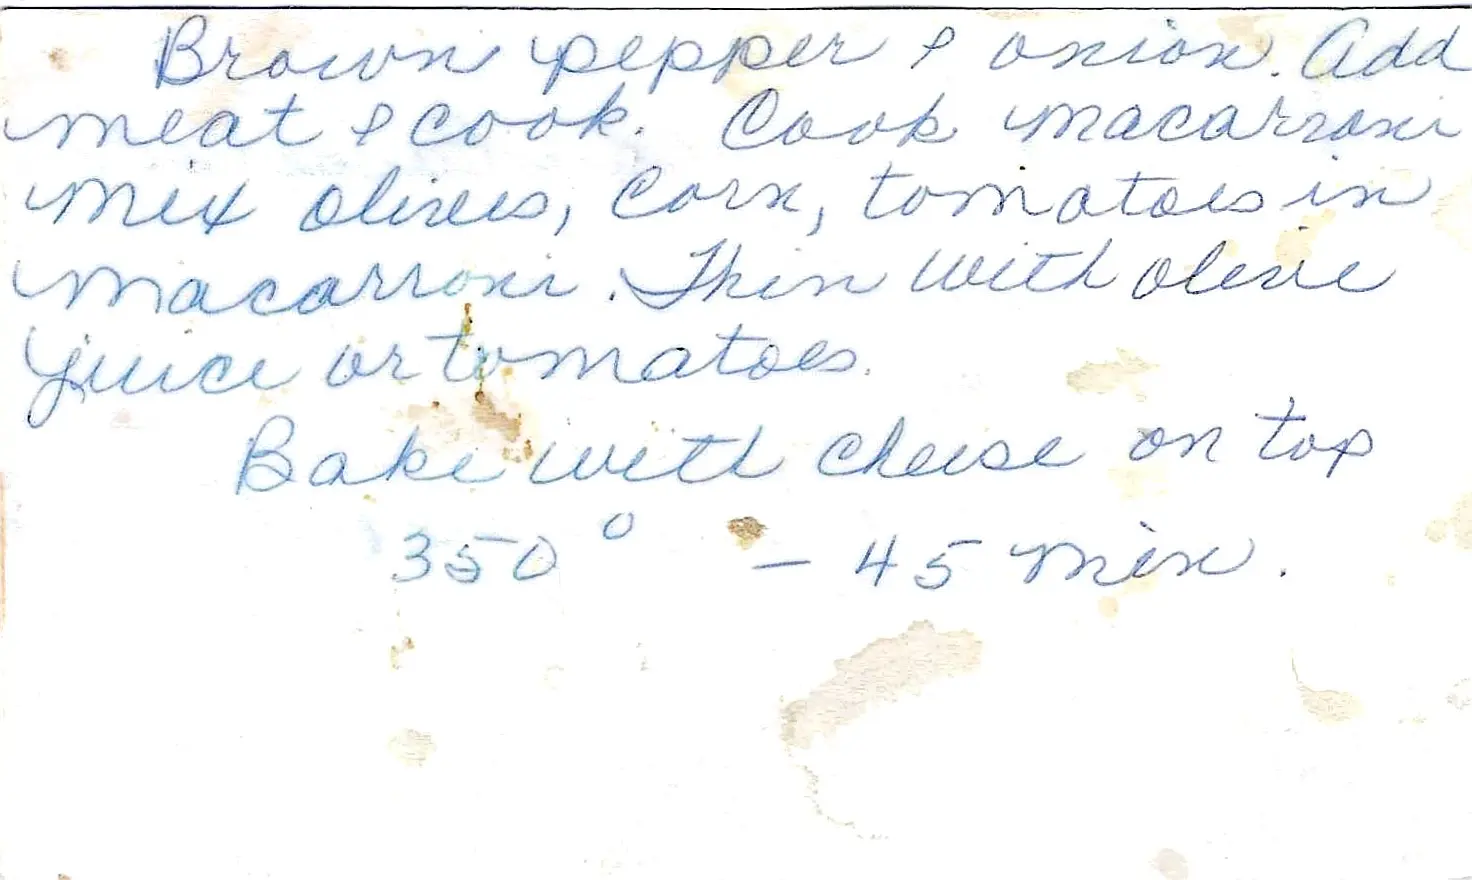 Brown pepper & onion. Add
meat & cook. Cook macarroni
mix olives, corn, tomatoes in
macarroni. Thin with olive
juice or tomatoes.
Bake with cheese on top
350° - 45 min.